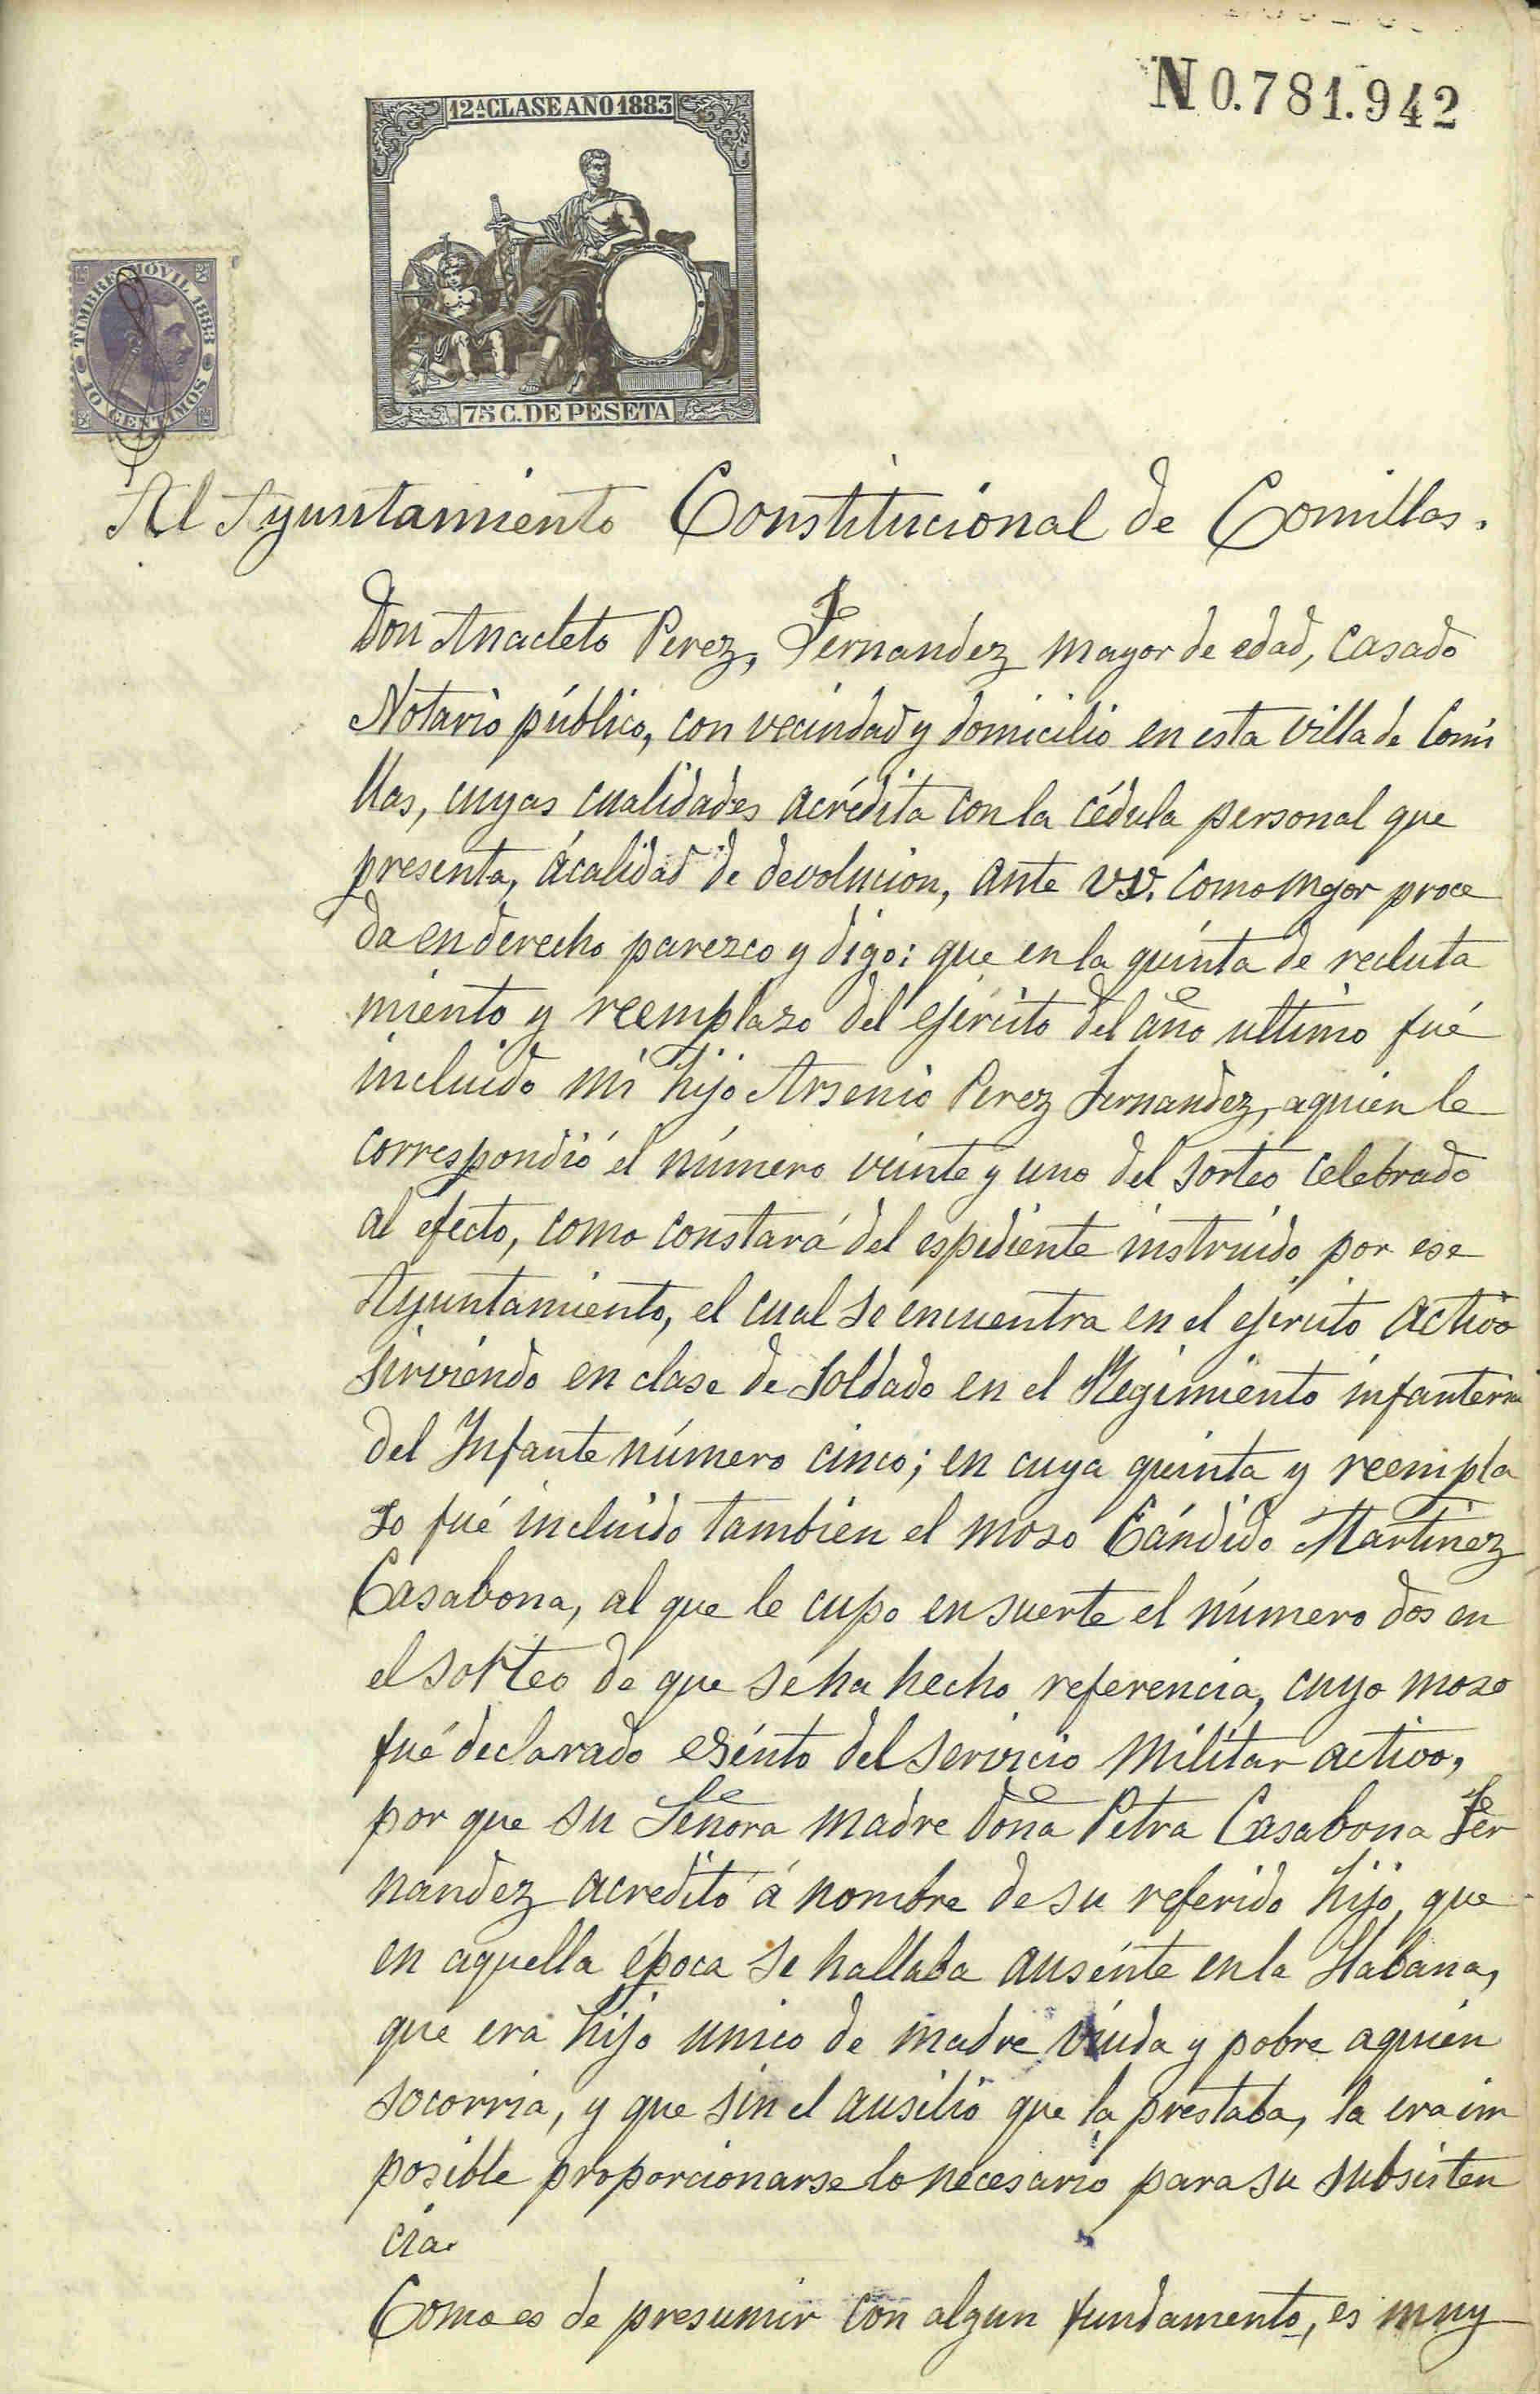 N 0.781.942
12ª CLASE AÑO 1883
TIMBRE MÓVIL 1883
10 CENTIMOS
75 C. DE PESETA
Al Ayuntamiento Constitucional de Comillas.
Don Anacleto Perez, Fernandez mayor de edad, casado
Notario público, con vecindad y domicilio en esta villa de Comi
llas, cuyas cualidades acrédita con la cédula personal que
presenta, ácalidad de devolucion, ante VV. como mejor proce
da en derecho parezco y digo: que en la quinta de recluta
miento y reemplazo del ejército del año ultimo fué
incluido mi hijo Arsenio Perez Fernandez, aquien le
correspondió el número veinte y uno del sorteo celebrado
al efecto, como constará del espediente instruido por ese
Ayuntamiento, el cual se encuentra en el ejército activo
sirviendo en clase de soldado en el Regimiento infanteria
del Infante número cinco; en cuya quinta y reempla
zo fué incluido tambien el mozo Cándido Martinez
Casabona, al que le cupo en suerte el número dos en
el sorteo de que se ha hecho referencia, cuyo mozo
fué declarado esénto del servicio militar activo,
por que su Señora madre doña Petra Casabona Fer
nandez acreditó á nombre de su referido hijo, que
en aquella época se hallaba ausénte en la Habana,
que era hijo unico de madre viuda y pobre aquien
socorria, y que sin el ausilio que la prestaba, la era im
posible proporcionarse lo necesario para su subsisten
cia.
Como es de presumir con algun fundamento, es muy